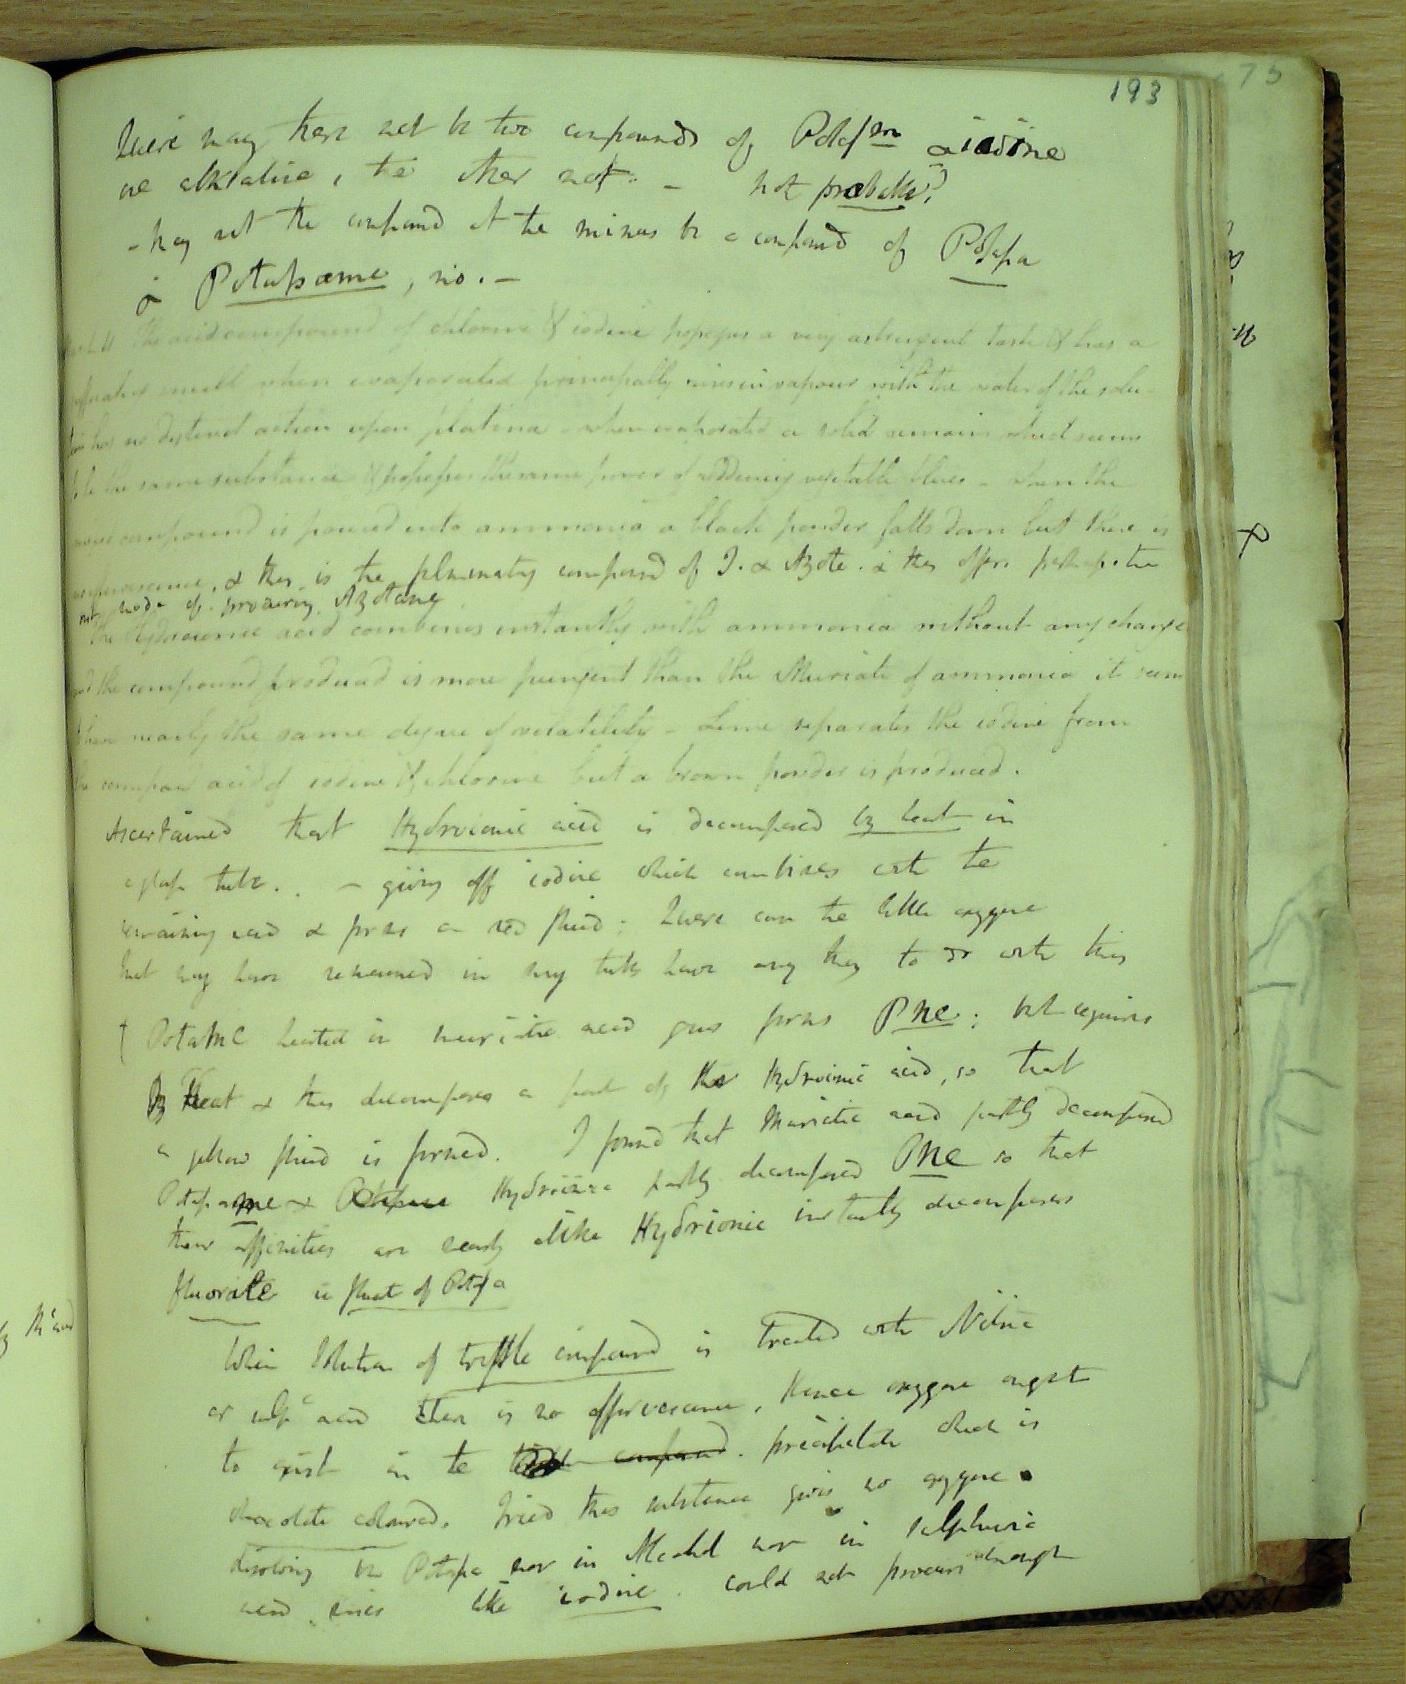 193
Quere may there not be two compounds of Potasm & iodine
one alkaline, the other not. - not probable?
- may not the compound at the minus be a compound of Potassa
& Potassame, no. -
The acid compound of chlorine & iodine possesses a very astringent taste & has a
smell when evaporated principally rises in vapour with the water of the solu-
has no distinct action upon platina - when evaporated a solid remains which seems
to be the same substance & possesses the same power of reddening vegetable blues - when the
compound is poured into ammonia a black powder falls down but there is
effervescence, & this is the fulminating compound of I. & Azote. & this offers perhaps the
mode of procuring Azotane
The Hydroionic acid combines instantly with ammonia without any change
and the compound produced is more pungent than the Muriate of ammonia it seems
to have nearly the same degree of volatility - Lime separates the iodine from
the compound acid of iodine & chlorine but a brown powder is produced.
Ascertained that Hydroionic acid is decomposed by heat in
a glass tube. - giving off iodine which combines with the
remaining acid & forms a red fluid; Quere can the little oxygene
that may have remained in my tube have any thing to do with this
Potame heated in muriatic acid gas forms Pme; but requires
Heat & this decomposes a part of the Hydroionic acid, so that
a yellow fluid is formed. I found that Muriatic acid partly decomposed
Potassame & Hydroionic partly decomposed Pme so that
their affinities are nearly alike Hydrionic instantly decomposes
fluorate ie fluat of Potassa
When Solution of tripple compound is treated with Nitric
or sulpc acid there is no effervescence, Hence oxygene ought
to exist in the compound. precipitate which is
chocolate coloured. Tried this substance gives no oxygene
dissolving in Potassa nor in Alcohol nor in sulphuric
acid rises like iodine. could not procure enough